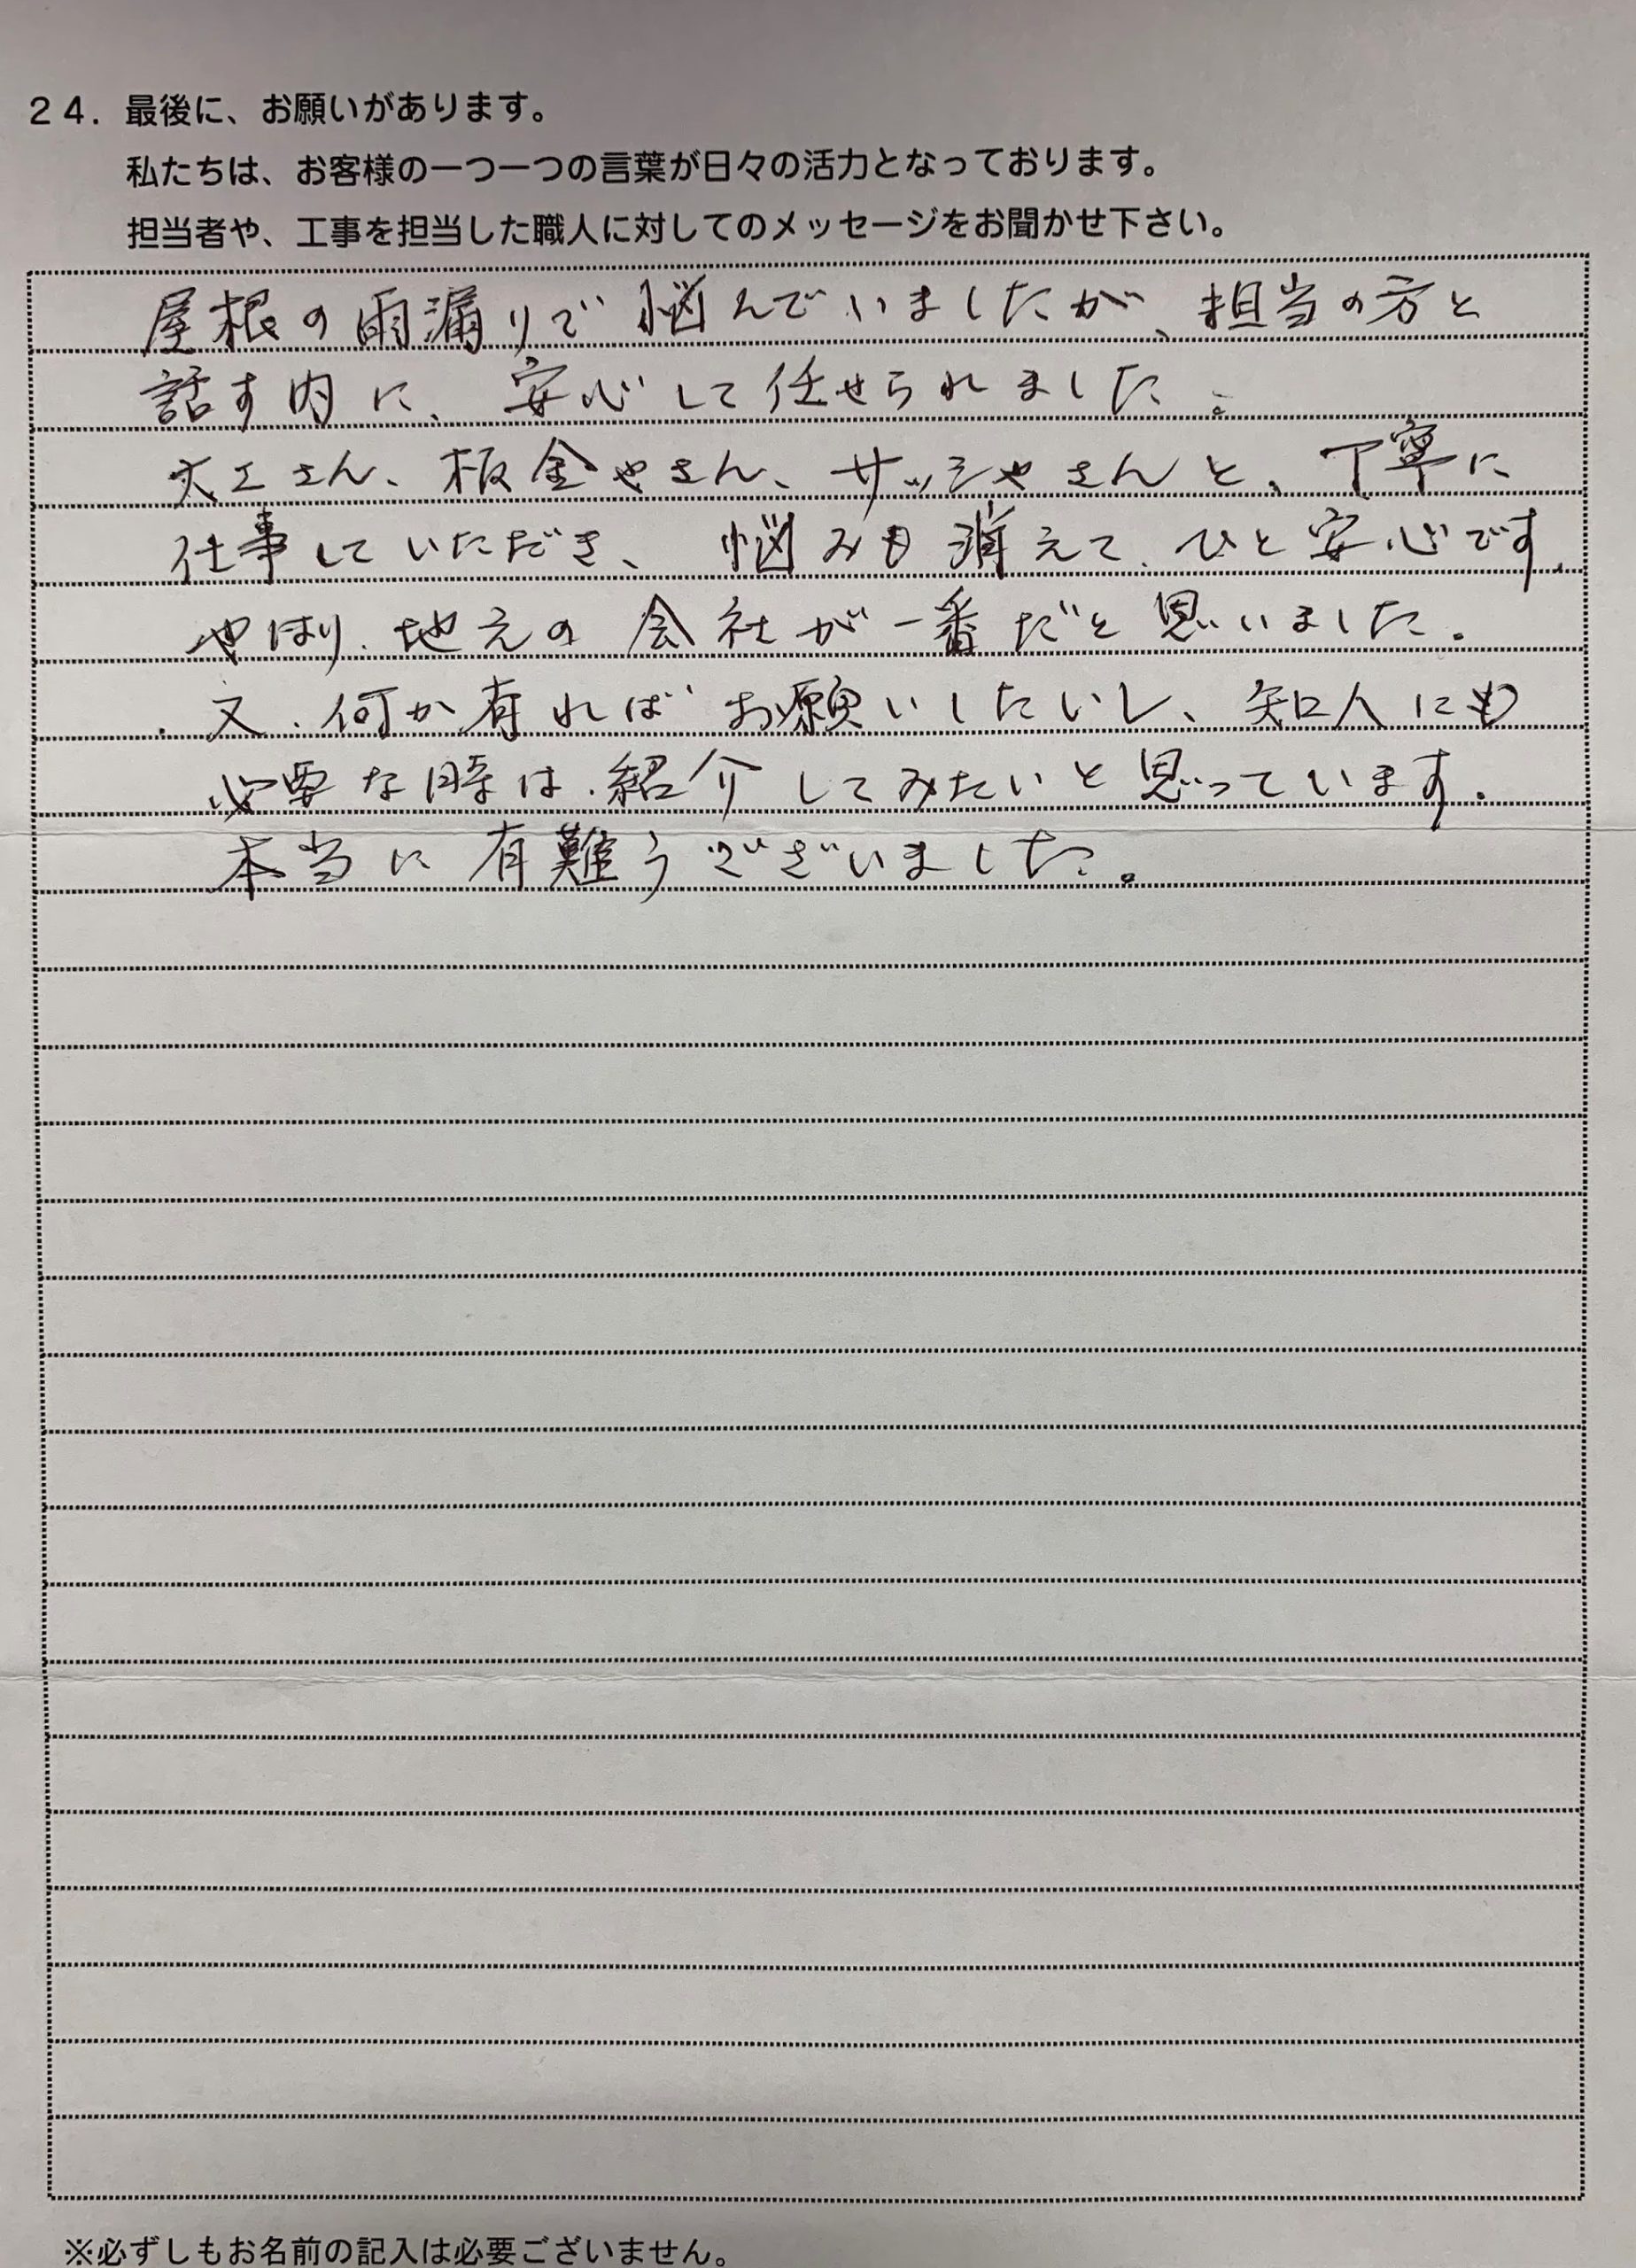 ２４．最後に、お願いがあります。
私たちは、お客様の一つ一つの言葉が日々の活力となっております。
担当者や、工事を担当した職人に対してのメッセージをお聞かせ下さい。
屋根の雨漏りで悩んでいましたが、担当の方と
話す内に、安心して任せられました。
大工さん、板金やさん、サッシやさんと、丁寧に
仕事していただき、悩みも消えて、ひと安心です。
やはり、地元の会社が一番だと思いました。
又、何か有ればお願いしたいし、知人にも
必要な時は、紹介してみたいと思っています。
本当に有難うございました。
※必ずしもお名前の記入は必要ございません。